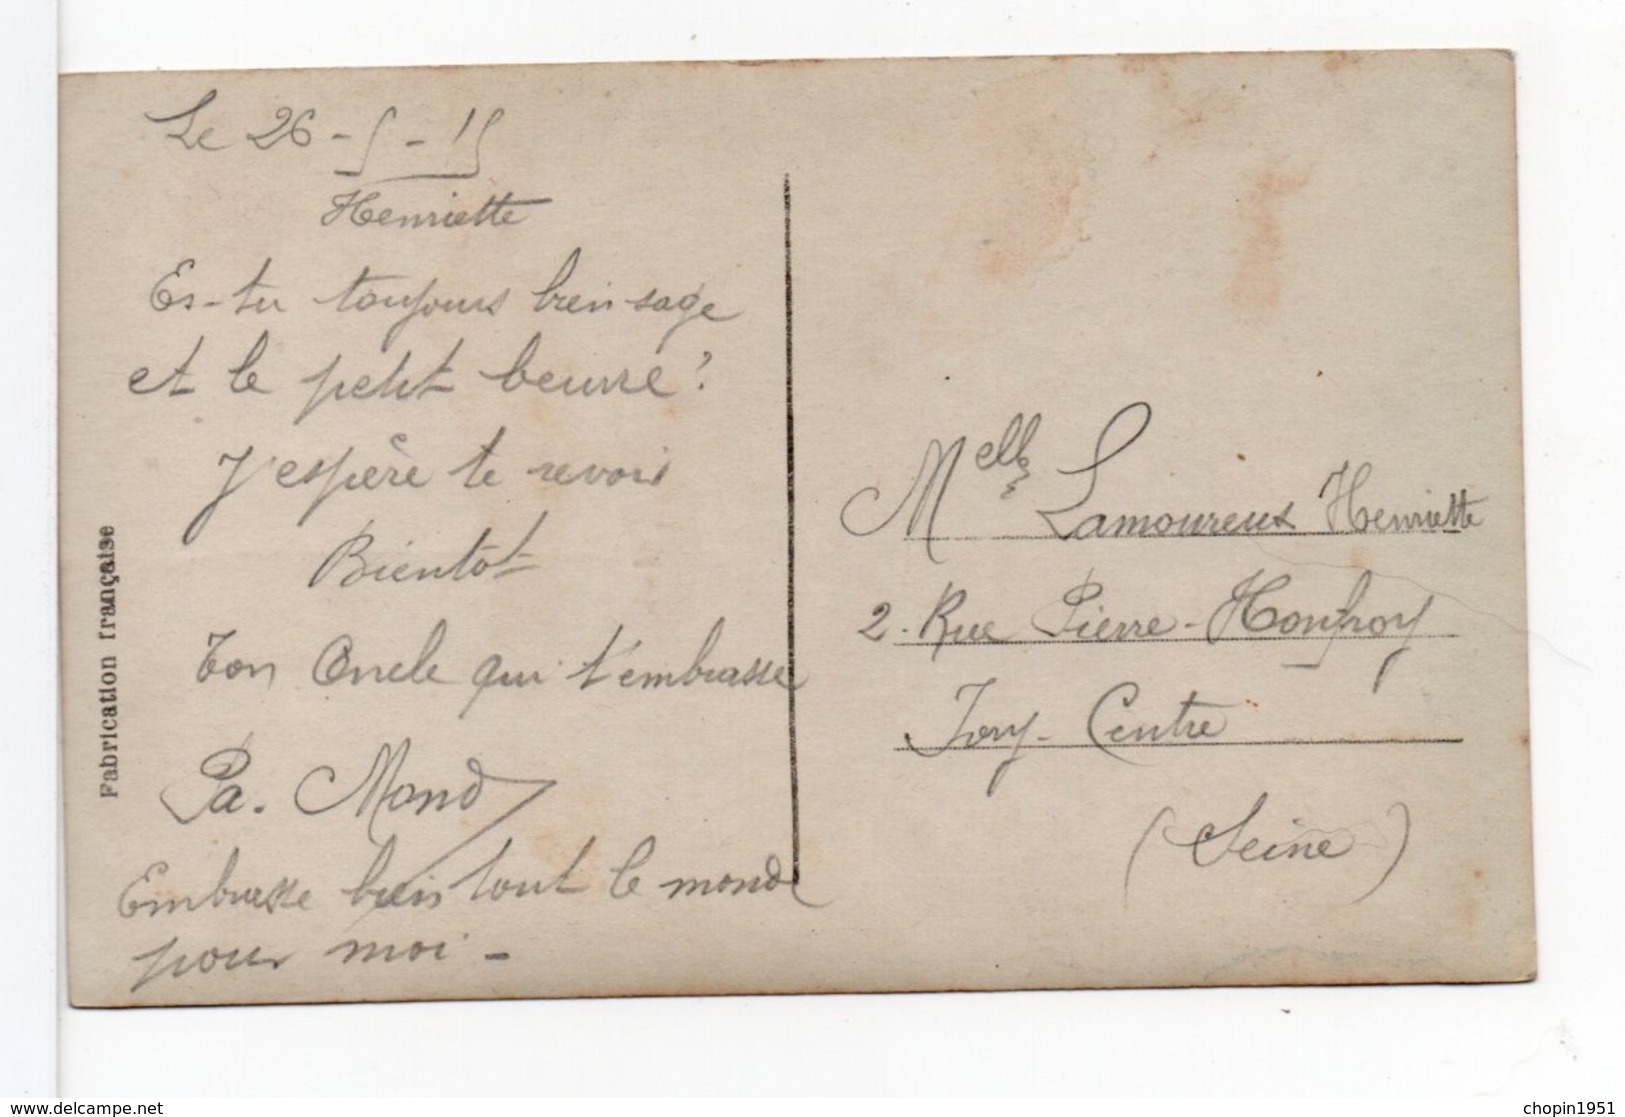 Le 26-5-15
Henriette
Es-tu toujours bien sage
et le petit beurre ?
J'espère te revois
Bientôt
Ton Oncle qui t'embrasse
Pa. Mond
Embrasse bien tout le monde
pour moi -
Fabrication française
Melle Lamoureux Henriette
2. Rue Pierre-Honfroy
Ivry-Centre
(Seine)
delcampe.net
chopin1951